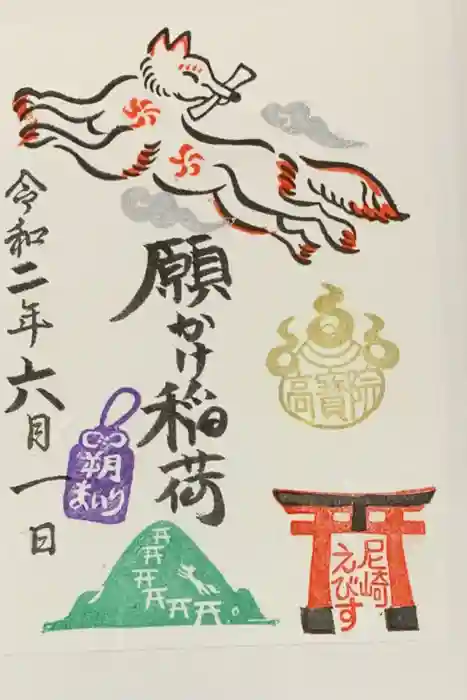 願かけ稲荷
高寳院
尼崎
えびす
朔
まいり
令和二年六月一日